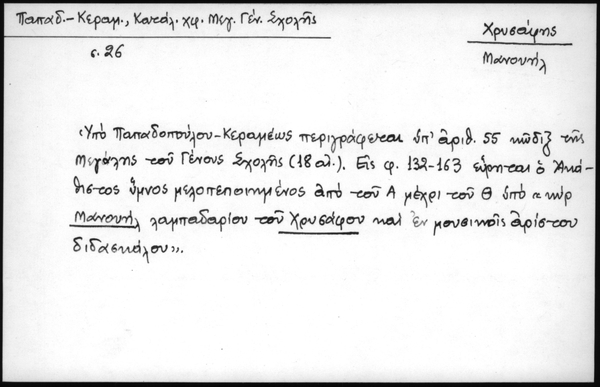 Παπαδ.-Κεραμ., Κατάλ. χφ. Μεγ. Γέν. Σχολῆς
Χρυσάφης
σ. 26
Μανουήλ
Ὑπὸ Παπαδοπούλου-Κεραμέως περιγράφεται ὑπ' ἀριθ. 55 κῶδιξ τῆς
Μεγάλης τοῦ Γένους Σχολῆς (18 αἰ.). Εἰς φ. 132-163 εὕρηται ὁ Ἀκά-
θιστος ὕμνος μελοπεποιημένος ἀπὸ τοῦ Α μέχρι τοῦ Θ ὑπὸ «κὺρ
Μανουήλ λαμπαδαρίου τοῦ Χρυσάφου καὶ ἐν μουσικοῖς ἀρίστου
διδασκάλου».